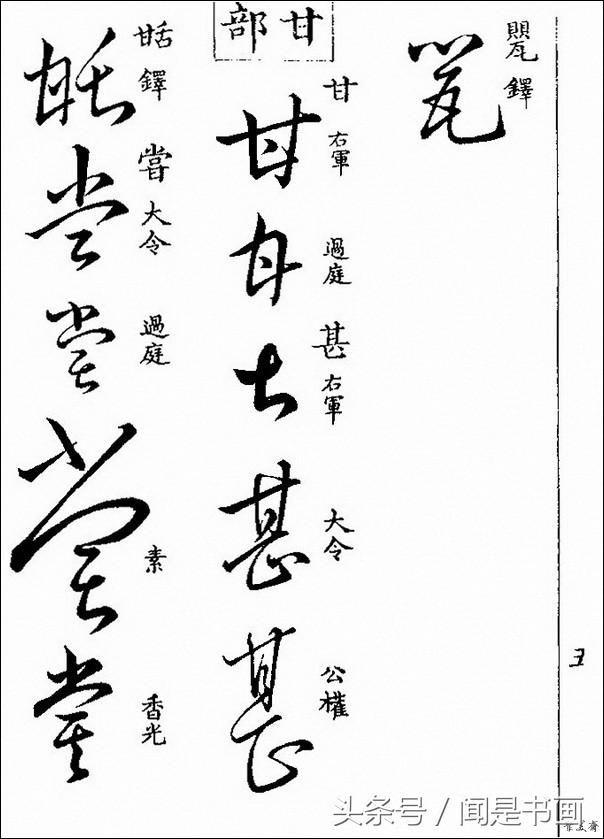 甖 鐸
甘部
甘 右軍
過庭
甚 右軍
大令
公權
甛 鐸
嘗 大令
過庭
素
香光
头条号 / 闻是书画